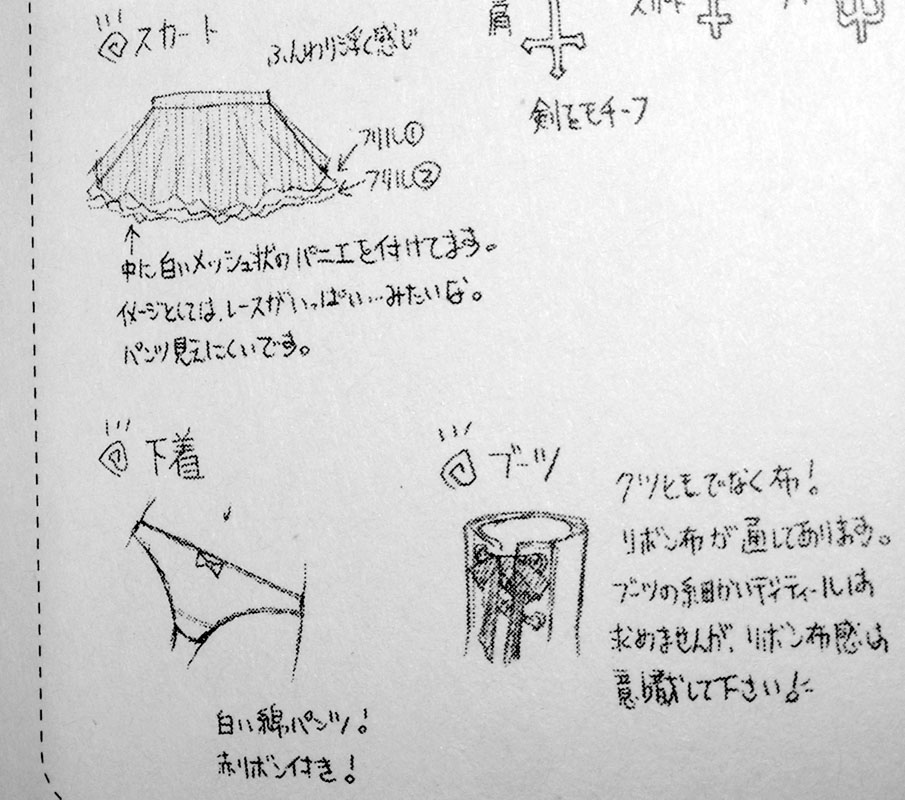 スカート
ふんわり浮く感じ
肩
剣をモチーフ
フリル①
フリル②
中に白いメッシュ状のパニエを付けてます。
イメージとしては、レースがいっぱい…みたいな。
パンツ見えにくいです。
下着
白い綿パンツ!
赤リボン付き!
ブーツ
クツヒモでなく布!
リボン布が通してあります。
ブーツの細かいディティールは
求めませんが、リボン布感は
意識して下さい!